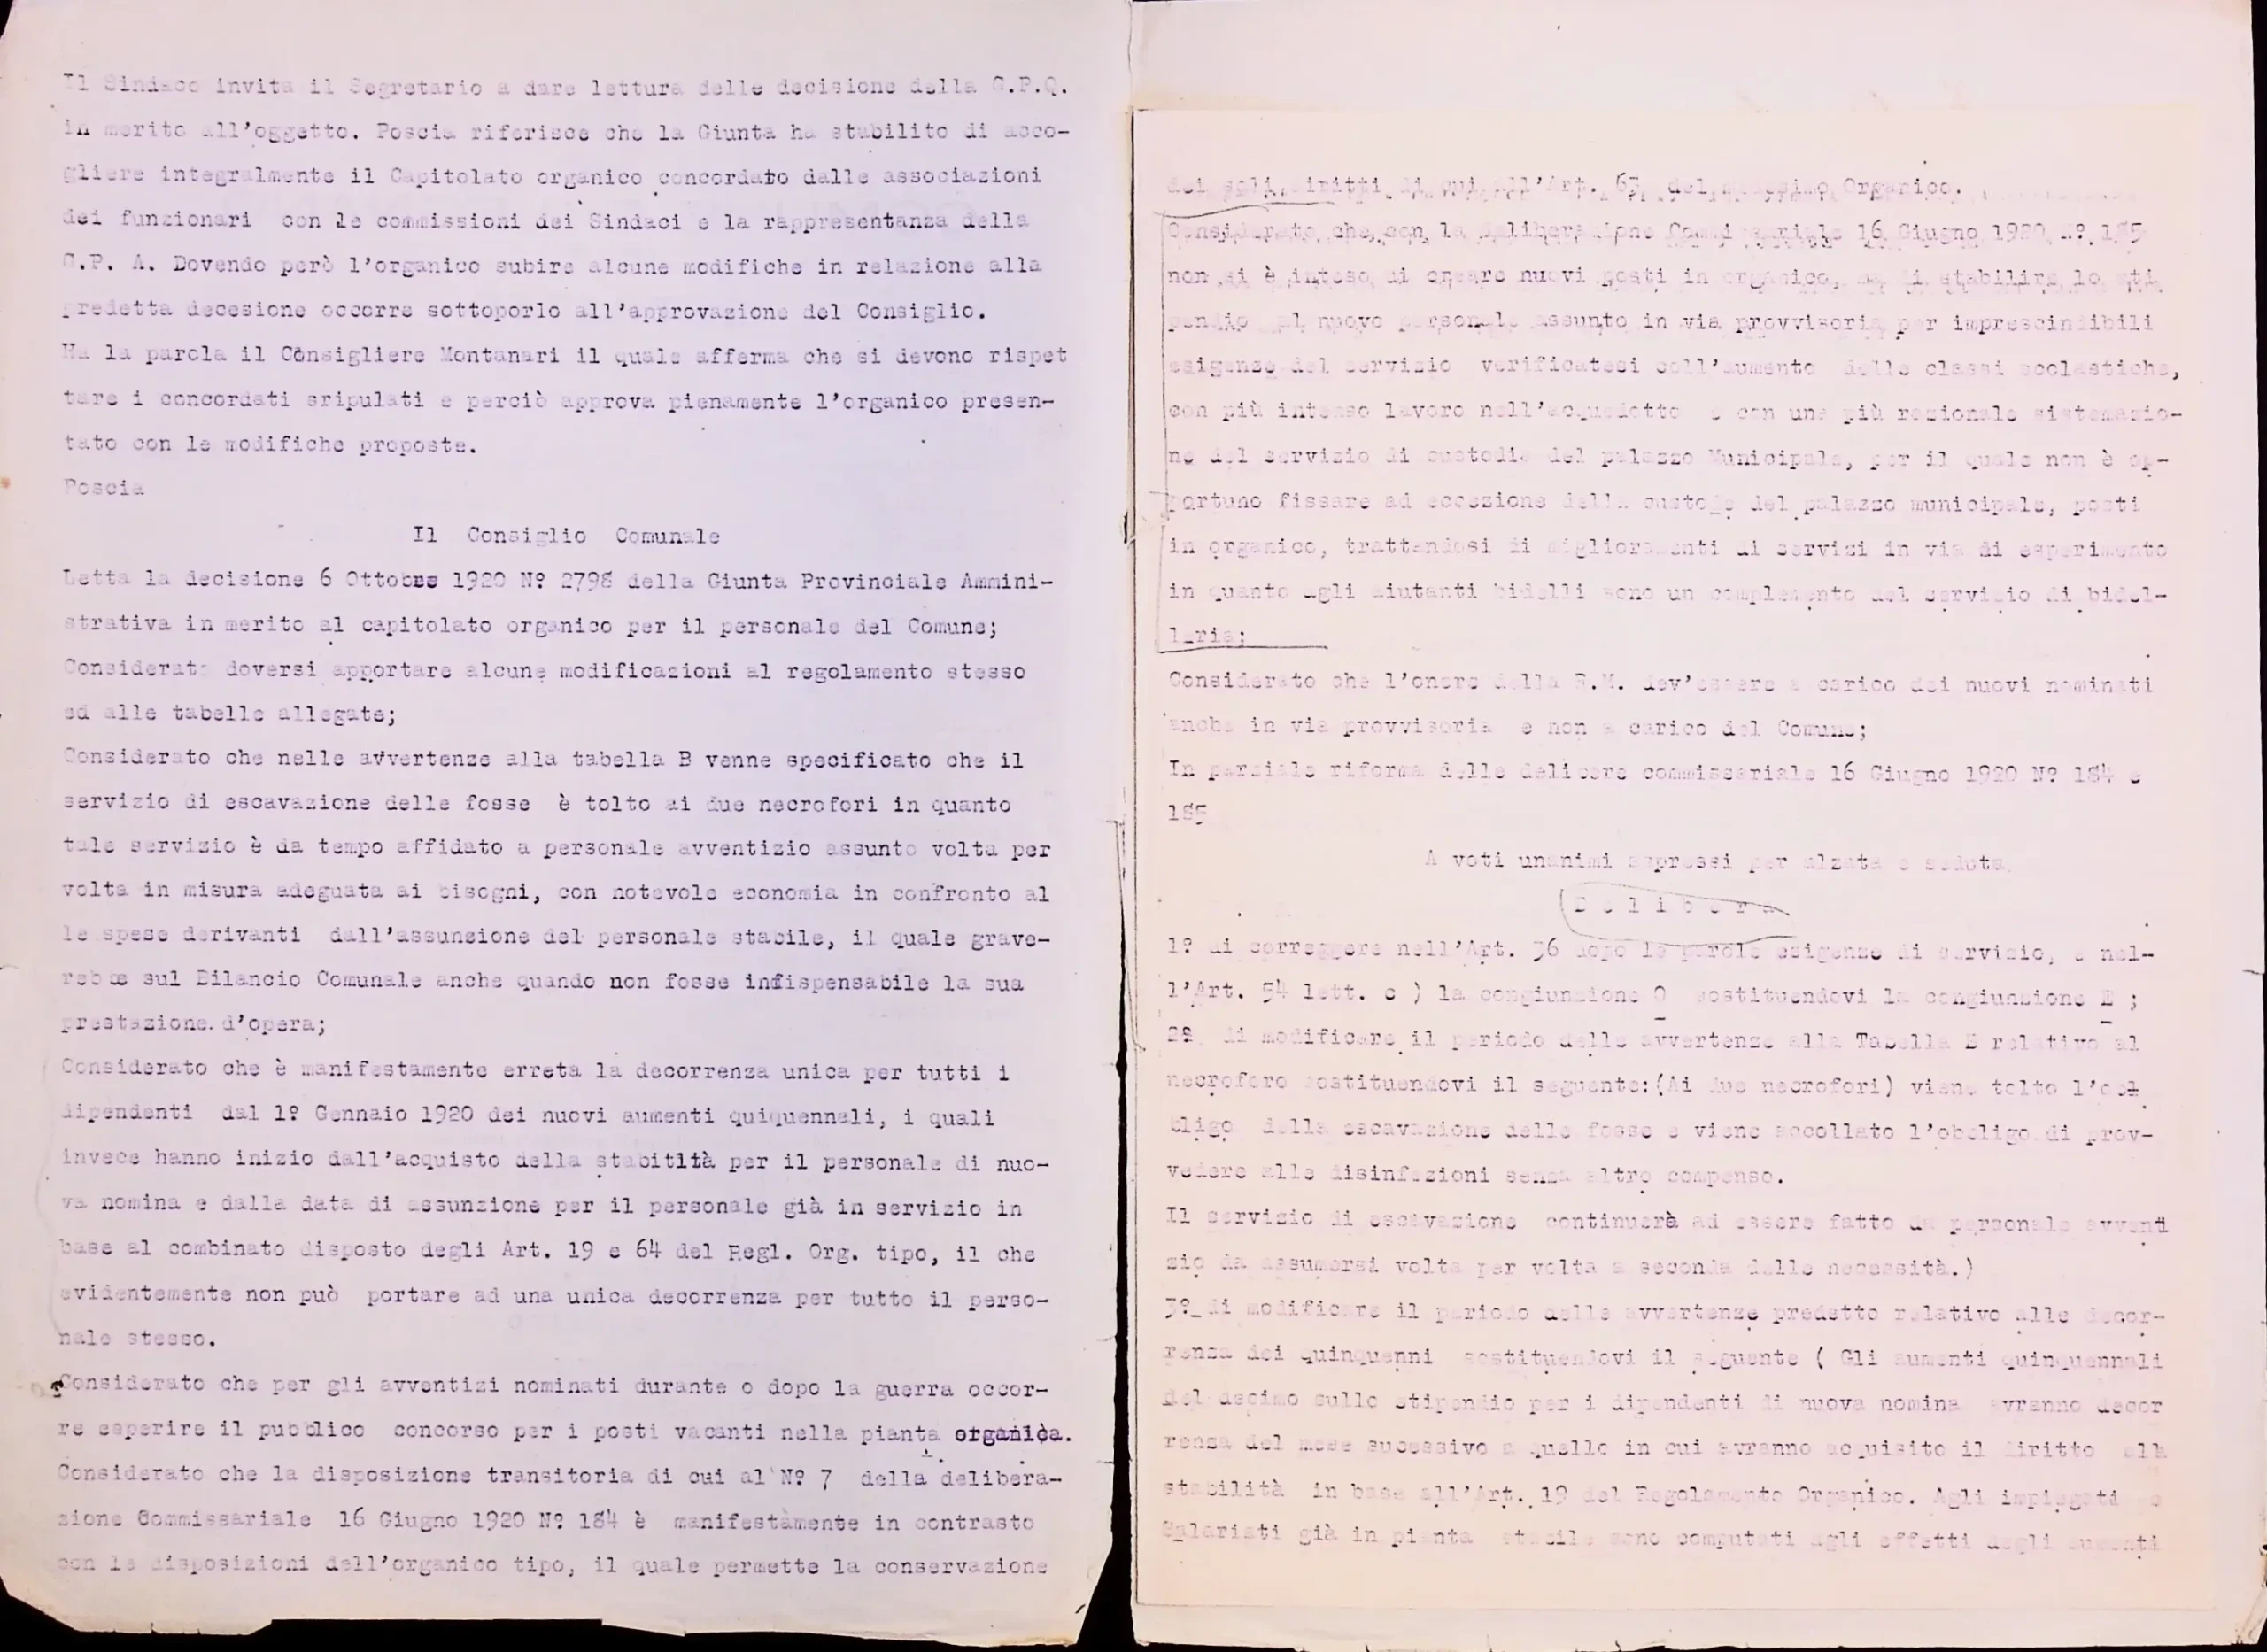 Il Sindaco invita il Segretario a dare lettura delle decisione della G.P.Q.
in merito all'oggetto. Poscia riferisce che la Giunta ha stabilito di acco-
gliere integralmente il Capitolato organico concordato dalle associazioni
dei funzionari con le commissioni dei Sindaci e la rappresentanza della
G.P. A. Dovendo però l'organico subire alcune modifiche in relazione alla
predetta decesione occorre sottoporlo all'approvazione del Consiglio.
Ha la parola il Consigliere Montanari il quale afferma che si devono rispet
tare i concordati sripulati e perciò approva pienamente l'organico presen-
tato con le modifiche proposte.
Poscia
Il Consiglio Comunale
Letta la decisione 6 Ottobre 1920 Nº 2798 della Giunta Provinciale Ammini-
strativa in merito al capitolato organico per il personale del Comune;
Considerato doversi apportare alcune modificazioni al regolamento stesso
ed alle tabelle allegate;
Considerato che nelle avvertenze alla tabella B venne specificato che il
servizio di escavazione delle fosse è tolto ai due necrofori in quanto
tale servizio è da tempo affidato a personale avventizio assunto volta per
volta in misura adeguata ai bisogni, con notevole economia in confronto al
le spese derivanti dall'assunzione del personale stabile, il quale grave-
rebbe sul Bilancio Comunale anche quando non fosse indispensabile la sua
prestazione d'opera;
Considerato che è manifestamente erreta la decorrenza unica per tutti i
dipendenti dal 1º Gennaio 1920 dei nuovi aumenti quiquennali, i quali
invece hanno inizio dall'acquisto della stabitltà per il personale di nuo-
va nomina e dalla data di assunzione per il personale già in servizio in
base al combinato disposto degli Art. 19 e 64 del Regl. Org. tipo, il che
evidentemente non può portare ad una unica decorrenza per tutto il perso-
nale stesso.
Considerato che per gli avventizi nominati durante o dopo la guerra occor-
re esperire il pubblico concorso per i posti vacanti nella pianta organica.
Considerato che la disposizione transitoria di cui al Nº 7 della delibera-
zione Commissariale 16 Giugno 1920 Nº 184 è manifestamente in contrasto
con le disposizioni dell'organico tipo, il quale permette la conservazione
dei soli diritti di cui all'Art. 63 del medesimo Organico.
Considerato che con la deliberazione Commissariale 16 Giugno 1920 Nº. 185
non si è inteso di creare nuovi posti in organico, ma di stabilire lo sti
pendio al nuovo personale assunto in via provvisoria per imprescindibili
esigenze del servizio verificatesi coll'aumento delle classi scolastiche,
con più intenso lavoro nell'acquedotto e con una più razionale sistemazio-
ne del servizio di custodia del palazzo Municipale, per il quale non è op-
portuno fissare ad eccezione della custode del palazzo municipale, posti
in organico, trattandosi di miglioramenti di servizi in via di esperimento
in quanto agli aiutanti bidelli sono un complemento del servizio di bidel-
leria;
Considerato che l'onere della R.M. dev'essere a carico dei nuovi nominati
anche in via provvisoria e non a carico del Comune;
In parziale riforma delle delibere commissariale 16 Giugno 1920 Nº 184 e
185
A voti unanimi espressi per alzata e seduta
Delibera
1º di correggere nell'Art. 36 dopo le parole esigenze di servizio, e nel-
l'Art. 54 lett. c ) la congiunzione O sostituendovi la congiunzione E ;
2º di modificare il periodo delle avvertenze alla Tabella B relativo al
necroforo sostituendovi il seguente:(Ai due necrofori) viene tolto l'ob
bligo della escavazione delle fosse e viene accollato l'obbligo di prov-
vedere alle disinfezioni senza altro compenso.
Il servizio di escavazione continuerà ad essere fatto da personale avventi
zio da assumersi volta per volta a seconda delle necessità.)
3º di modificare il periodo delle avvertenze predetto relativo alle decor-
renza dei quinquenni sostituendovi il seguente ( Gli aumenti quinquennali
del decimo sullo stipendio per i dipendenti di nuova nomina avranno decor
renza del mese sucessivo a quello in cui avranno acquisito il diritto alla
stabilità in base all'Art. 19 del Regolamento Organico. Agli impiegati e
Salariati già in pianta stabile sono computati agli effetti degli aumenti